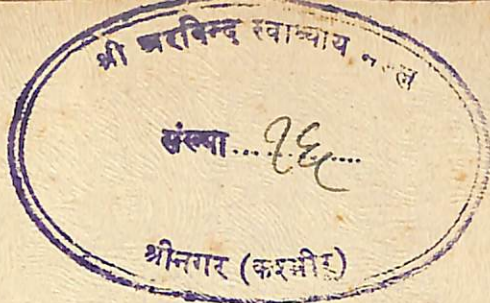 श्री अरविन्द स्वाध्याय मण्डल
संख्या......१६....
श्रीनगर (कश्मीर)